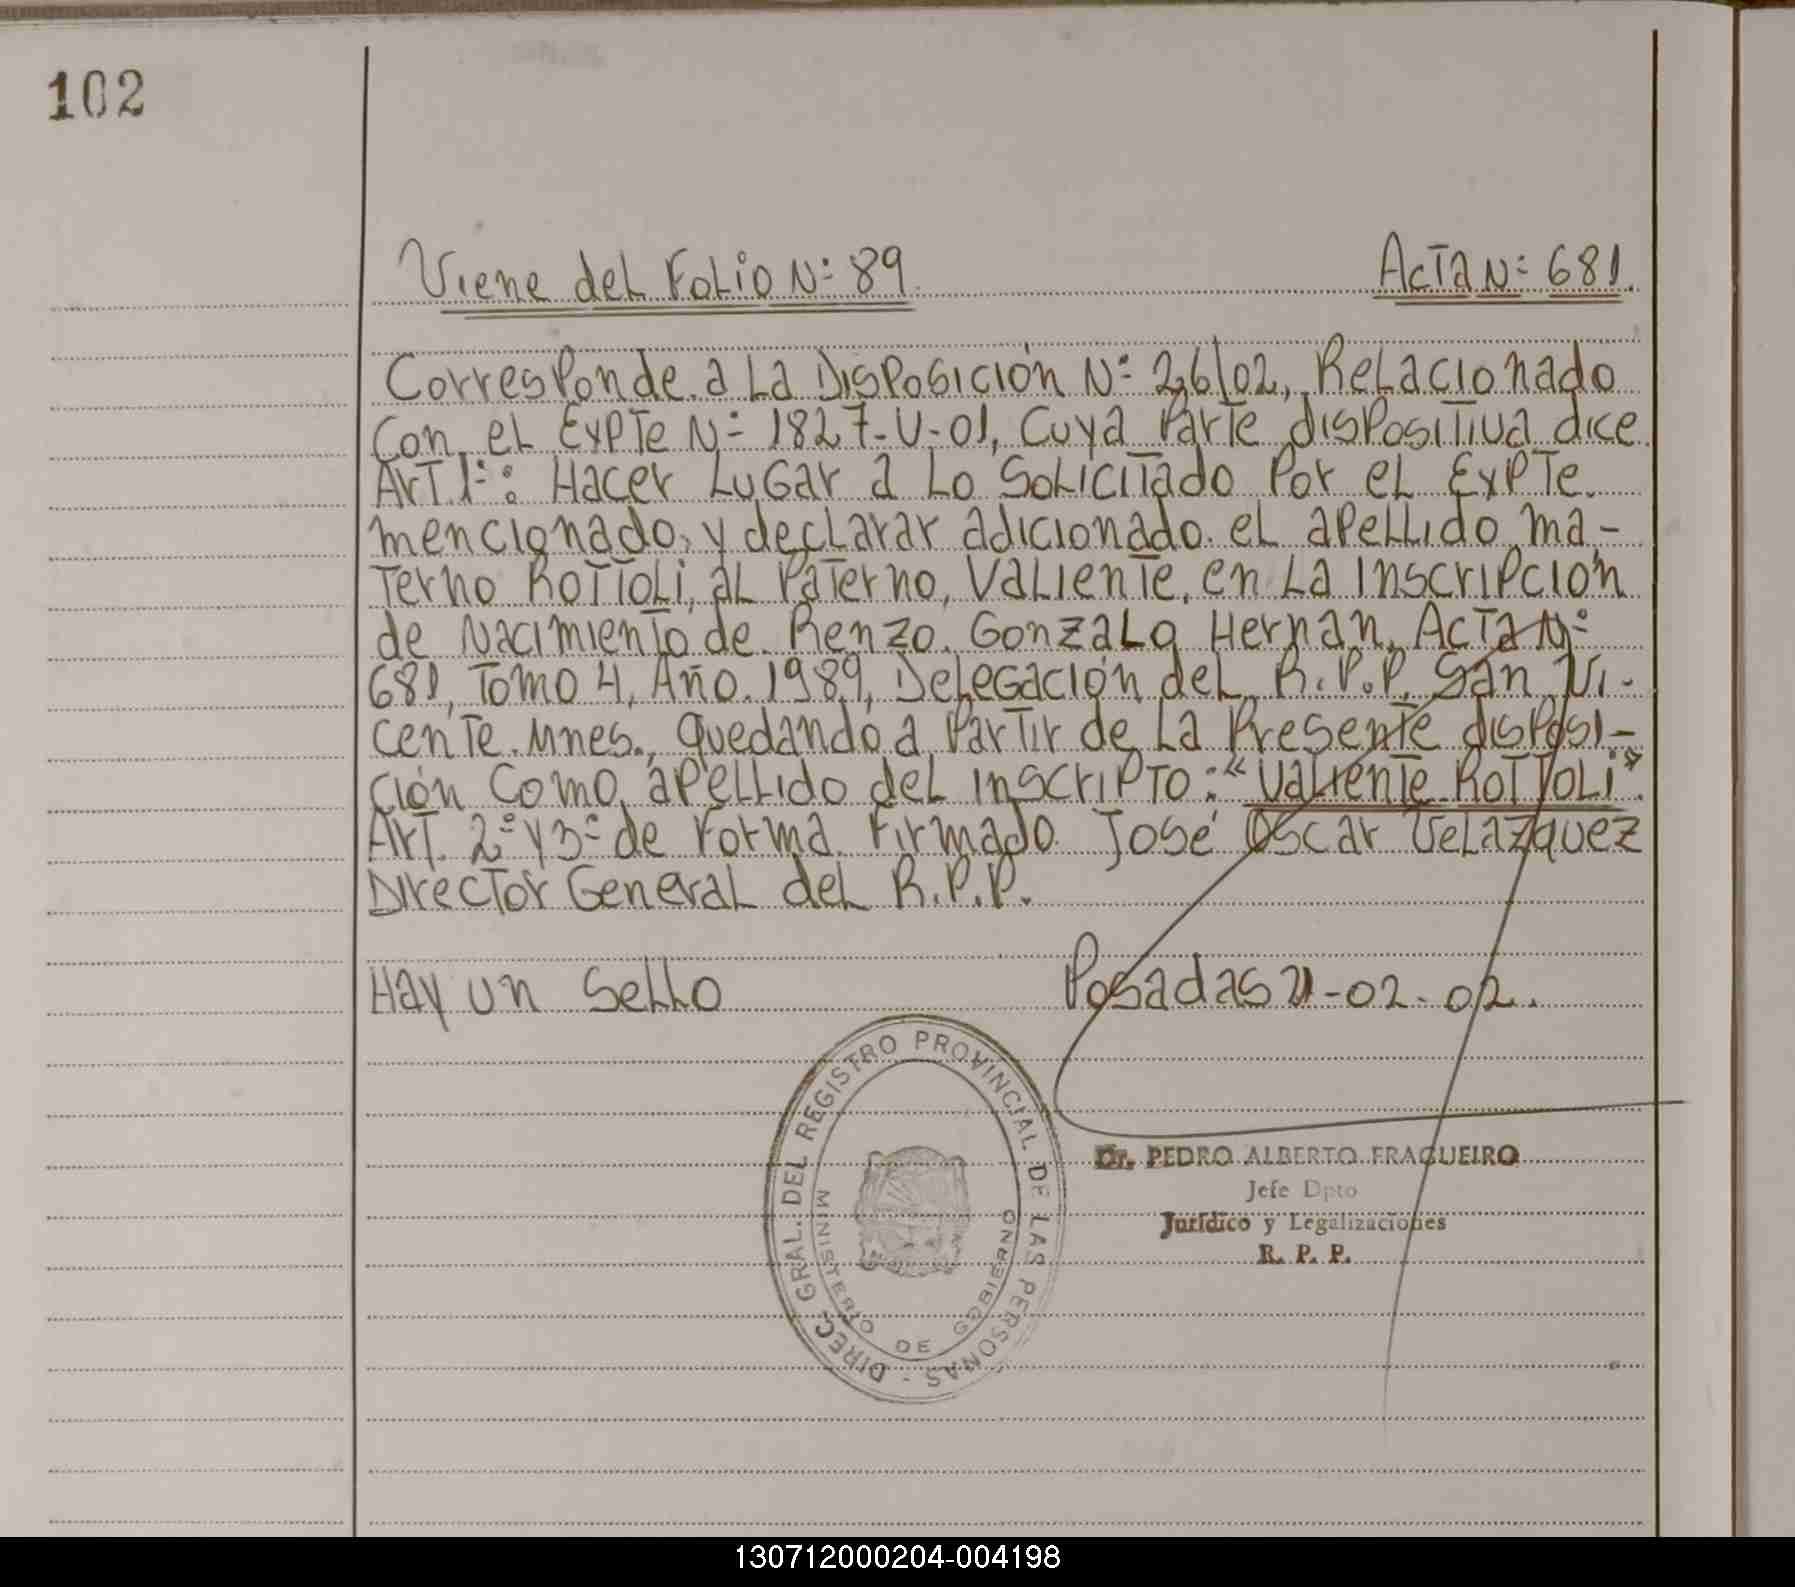 102
Viene del Folio Nº 89
Acta Nº 681.
Corresponde a la Disposición Nº 26/02, Relacionado
con el Expte Nº 1827-V-01, cuya parte dispositiva dice
Art 1º: Hacer Lugar a lo Solicitado por el Expte.
mencionado, y declarar adicionado el apellido ma-
terno Rottoli, al paterno, Valiente, en la inscripción
de Nacimiento de Renzo Gonzalo Hernan, Acta Nº
681, Tomo 4, Año 1989, Delegación del R.P.P. San Vi-
cente. Mnes., quedando a partir de la presente disposi-
ción como apellido del inscripto: "Valiente Rottoli"
Art. 2º y 3º de forma firmado José Oscar Velazquez
Director General del R.P.P.
Hay un Sello
Posadas 21-02-02.
DIRECC. GRAL. DEL REGISTRO PROVINCIAL DE LAS PERSONAS -
MINISTERIO DE GOBIERNO
Dr. PEDRO ALBERTO FRAGUEIRO
Jefe Dpto
Jurídico y Legalizaciones
R. P. P.
130712000204-004198